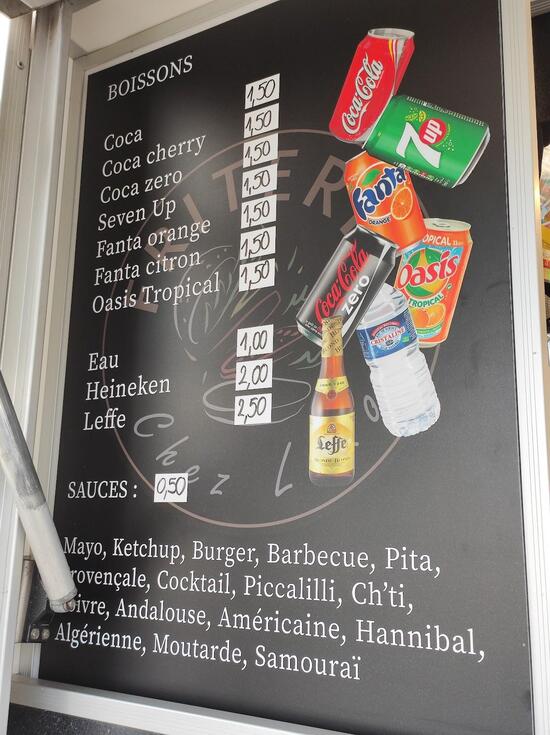 BOISSONS
Coca 1,50
Coca cherry 1,50
Coca zero 1,50
Seven Up 1,50
Fanta orange 1,50
Fanta citron 1,50
Oasis Tropical 1,50
Eau 1,00
Heineken 2,00
Leffe 2,50
SAUCES : 0,50
Mayo, Ketchup, Burger, Barbecue, Pita,
rovençale, Cocktail, Piccalilli, Ch'ti,
oivre, Andalouse, Américaine, Hannibal,
Algérienne, Moutarde, Samouraï
Coca-Cola
7up
Fanta
ORANGE
Coca-Cola
zero
OPICAL
Oasis
TROPICAL
CRISTALINE
Leffe
Chez L